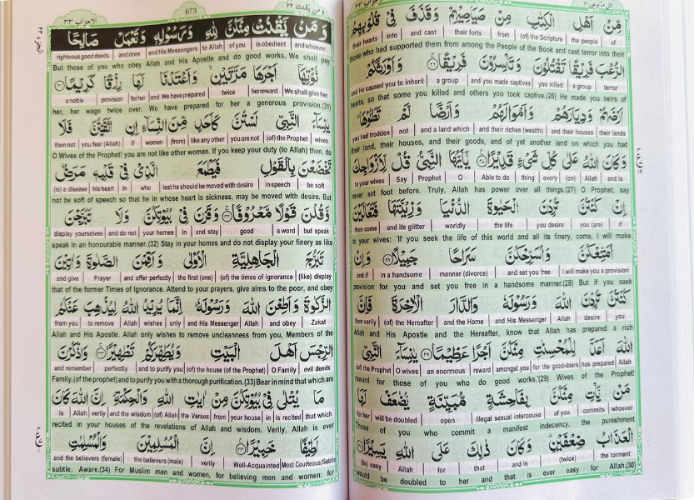 الاحزاب ٣٣
مِّنْ اَهْلِ الْكِتٰبِ مِنْ صَيَاصِيْهِمْ وَقَذَفَ فِيْ قُلُوْبِهِمُ
their hearts into and cast their forts from (of) the Scripture the people of
those who had supported them from among the People of the Book and cast terror into their
الرُّعْبَ فَرِيْقًا تَقْتُلُوْنَ وَتَاْسِرُوْنَ فَرِيْقًا وَاَوْرَثَكُمْ
and He caused you to inherit a group and you made captives you killed a group terror
hearts, so that some you killed and others you took captive.(26) He made you heirs of
اَرْضَهُمْ وَدِيَارَهُمْ وَاَمْوَالَهُمْ وَاَرْضًا لَّمْ تَطَـُٔوْهَا
you had trodden not and a land which and their riches (wealth) and their houses their lands
their land, their houses, and their goods, and of yet another land on which you had
وَكَانَ اللّٰهُ عَلٰى كُلِّ شَيْءٍ قَدِيْرًا يٰٓاَيُّهَا النَّبِيُّ قُلْ لِّاَزْوَاجِكَ
to your wives Say Prophet O Able to do thing every (on) Allah and is
never set foot before. Truly, Allah has power over all things.(27) O Prophet, say
اِنْ كُنْتُنَّ تُرِدْنَ الْحَيٰوةَ الدُّنْيَا وَزِيْنَتَهَا فَتَعَالَيْنَ
then come and its glitter worldly the life you desire you (are) if
to your wives: 'If you seek the life of this world and all its finery, come, I will make
اُمَتِّعْكُنَّ وَاُسَرِّحْكُنَّ سَرَاحًا جَمِيْلًا وَاِنْ
and if in a handsome manner (divorce) and set you free I will make you a provision
provision for you and set you free in a handsome manner.(28) But if you seek
كُنْتُنَّ تُرِدْنَ اللّٰهَ وَرَسُوْلَهٗ وَالدَّارَ الْاٰخِرَةَ فَاِنَّ
then verily (of) the Hereafter and the Home and His Messenger Allah desire you
Allah and His Apostle and the Hereafter, know that Allah has prepared a rich
اللّٰهَ اَعَدَّ لِلْمُحْسِنٰتِ مِنْكُنَّ اَجْرًا عَظِيْمًا يٰنِسَآءَ النَّبِيِّ
(of) the Prophet O wives an enormous reward amongst you for the good-doers has prepared Allah
reward for those of you who do good works.'(29) Wives of the Prophet!
مَنْ يَّاْتِ مِنْكُنَّ بِفَاحِشَةٍ مُّبَيِّنَةٍ يُّضٰعَفْ لَهَا
for her will be doubled open illegal sexual intercourse of you commits whoever
Those of you who commit a manifest indecency, the punishment
الْعَذَابُ ضِعْفَيْنِ وَكَانَ ذٰلِكَ عَلَى اللّٰهِ يَسِيْرًا
easy Allah for that and is (twice) the torment
would be doubled to her and that is ever easy for Allah.(30)
673
الاحزاب ٣٣
وَمَنْ يَّقْنُتْ مِنْكُنَّ لِلّٰهِ وَرَسُوْلِهٖ وَتَعْمَلْ صَالِحًا
righteous good deeds and does and His Messengers to Allah of you is obedient and whoever
But those of you who obey Allah and His Apostle and do good works, We shall pay
نُّؤْتِهَآ اَجْرَهَا مَرَّتَيْنِ وَاَعْتَدْنَا لَهَا رِزْقًا كَرِيْمًا
a noble provision for her and We have prepared twice her reward We shall give her
her, her wage twice over. We have prepared for her a generous provision.(31)
يٰنِسَآءَ النَّبِيِّ لَسْتُنَّ كَاَحَدٍ مِّنَ النِّسَآءِ اِنِ اتَّقَيْتُنَّ فَلَا
then not you fear (Allah) if women (from) like any other you are not (of) the Prophet O wives
O Wives of the Prophet! you are not like other woman. If you keep your duty (to Allah) then, do
تَخْضَعْنَ بِالْقَوْلِ فَيَطْمَعَ الَّذِيْ فِيْ قَلْبِهٖ مَرَضٌ
(is) a disease his heart in who lest he should be moved with desire in speech be soft
not be soft of speech so that he in whose heart is sickness, may be moved with desire. But
وَّقُلْنَ قَوْلًا مَّعْرُوْفًا وَقَرْنَ فِيْ بُيُوْتِكُنَّ وَلَا تَبَرَّجْنَ
display yourselves and do not your homes in and stay good a word but speak
speak in an honourable manner.(32) Stay in your homes and do not display your finery as like
تَبَرُّجَ الْجَاهِلِيَّةِ الْاُوْلٰى وَاَقِمْنَ الصَّلٰوةَ وَاٰتِيْنَ
and give Prayer and offer perfectly the first (one) (of) the times of ignorance (like) display
that of the former Times of Ignorance. Attend to your prayers, give alms to the poor, and obey
الزَّكٰوةَ وَاَطِعْنَ اللّٰهَ وَرَسُوْلَهٗ اِنَّمَا يُرِيْدُ اللّٰهُ لِيُذْهِبَ عَنْكُمُ
from you to remove Allah wishes only and His Messenger Allah and obey Zakat
Allah and His Apostle. Allah only wishes to remove uncleanness from you, Members of the
الرِّجْسَ اَهْلَ الْبَيْتِ وَيُطَهِّرَكُمْ تَطْهِيْرًا وَاذْكُرْنَ
and remember perfectly and to purify you (of) the house (of the Prophet) O Family evil deeds
Family,(of the prophet) and to purify you with a thorough purification. (33) Bear in mind that which are
مَا يُتْلٰى فِيْ بُيُوْتِكُنَّ مِنْ اٰيٰتِ اللّٰهِ وَالْحِكْمَةِ اِنَّ اللّٰهَ كَانَ
is Allah verily and the wisdom (of) Allah the Verses from your house in is recited that which
recited in your houses of the revelations of Allah and wisdom. Verily, Allah is ever
لَطِيْفًا خَبِيْرًا اِنَّ الْمُسْلِمِيْنَ وَالْمُسْلِمٰتِ
and the believers (female) the believers (male) verily Well-Acquainted Most Courteous(Subtle)
subtle, Aware.(34) For Muslim men and women, for believing men and women: for